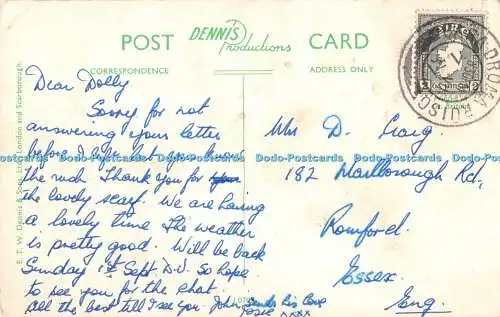 POST DENNIS Productions CARD
CORRESPONDENCE ADDRESS ONLY
Dear Dolly
Sorry for not
answering your letter
before I left but you know
the rush Thank you for
the lovely scarf. We are having
a lovely time The weather
is pretty good. Will be back
Sunday 1st Sept. D.V. So hope
to see you for the chat.
All the best till I see you. John sends Big Love
Josie xxxx
Mrs D. Craig.
182 Marlborough Rd,
Romford.
Essex.
Eng.
E. T. W. Dennis & Sons Ltd., London and Scarborough.
Dodo-Postcards Dodo-Postcards Dodo-Postcards Dodo-Postcards Dodo-Postcards Dodo-Postcards
2 2